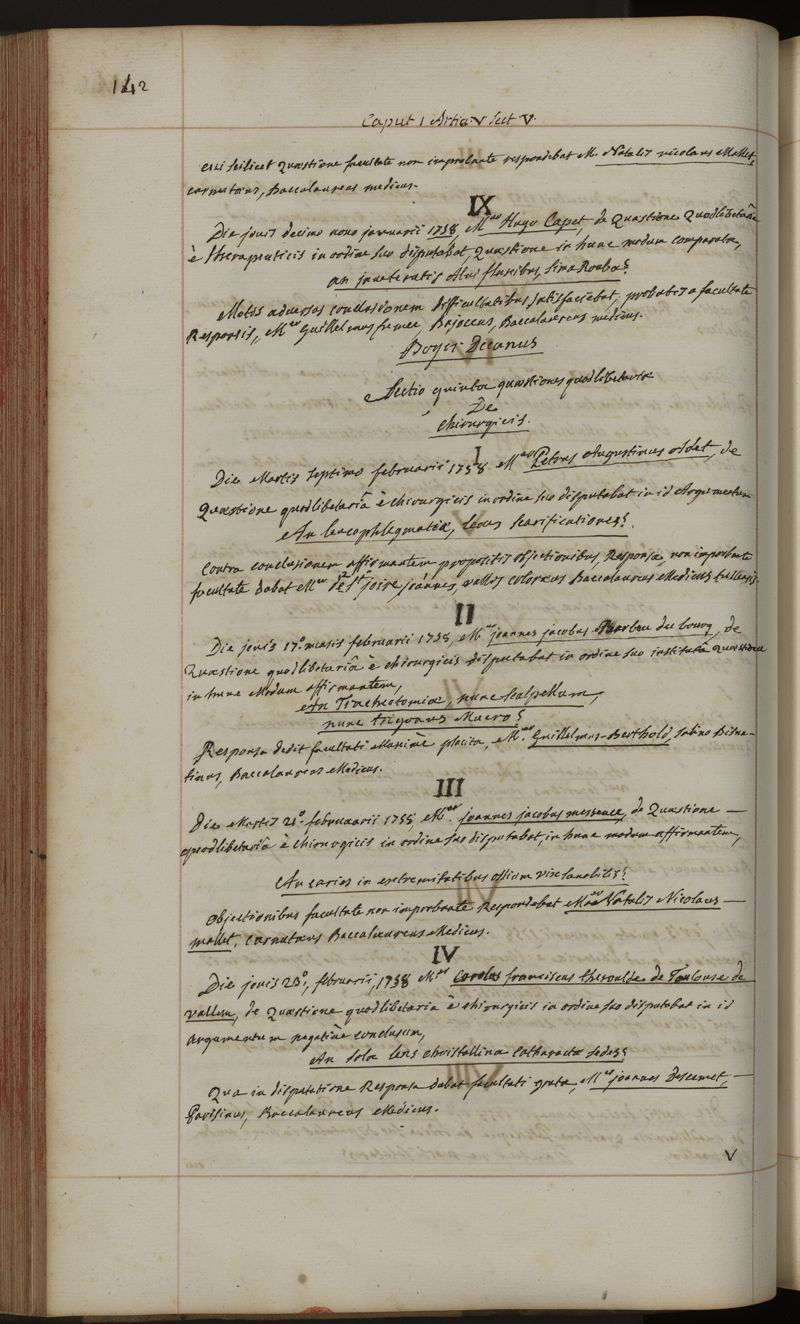 142
Caput 1 Artic. V Sect V.
cui scilicet quæstione facultate non improbante respondebat M. Natalis nicolaus Mallet,
carnutæus, Baccalaureus medicus.
IX
Die jovis decimo nono januarii 1738, M.er Hugo Capet, de Quæstione Quodlibetariâ
è therapeuticis in ordine suo disputabat, Quæstione in hunc modum comparata,
an inveteratis alvi fluxibus, simaRouba?
Motis adversus conclusionem difficultatibus satisfaciebat, probatis a facultate
Responsis, M.er Guillelmus fumée, Bajoceus, Baccalaureus medicus.
Boyer Decanus
Sectio quinta quæstiones quodlibetariæ
De
chirurgicis.
I
Die Martis septimo februarii 1738 M.er Petrus Augustinus adet, de
Quæstione quodlibetariâ è chirurgicis in ordine suo disputabat in id Argumentum
An leucophlegmatiæ, leves scarificationes?
Contra conclusionem affirmantem propositis objectionibus, Responsa, non improbante
facultate dabat M.er joannes, Baccalaureus Medicus
II
Die jovis 17.o mensis februarii 1738, M.er joannes jacobus Barbeu du bourg, de
Quæstione quodlibetariâ è chirurgicis disputabat in ordine suo institutâ quæstione
in hunc Modum affirmantem,
An Tracheotomiæ, nunc scalpellum,
nunc trigonus Mucro?
Responsa dedit facultati Maximè placita, M.er Guillelmus-Berthold, sabino
Baccalaureus Medicus.
III
Die Martis 21.o februarii 1738, M.er joannes jacobus messence, de Quæstione —
quodlibetariâ è chirurgicis in ordine suo disputabat, in hunc modum affirmantem,
An caries in extremitatibus ossium vix sanabilis?
objectionibus facultate non improbante Respondebat M.er Natalis Nicolaus —
mallet, carnutæus Baccalaureus Medicus.
IV
Die jovis 23.o, februarii, 1738 M.er Carolus franciscus theroulde de Toulouse de
vallun, de Quæstione quodlibetaria è chirurgicis in ordine suo disputabat in id
argumentum negativè conclusum,
An sola lens christallina catharactæ sedes?
Qua in disputatione Responsa dabat facultati grata, M.er joannes Descemet, —
Parisinus, Baccalaureus Medicus.
V